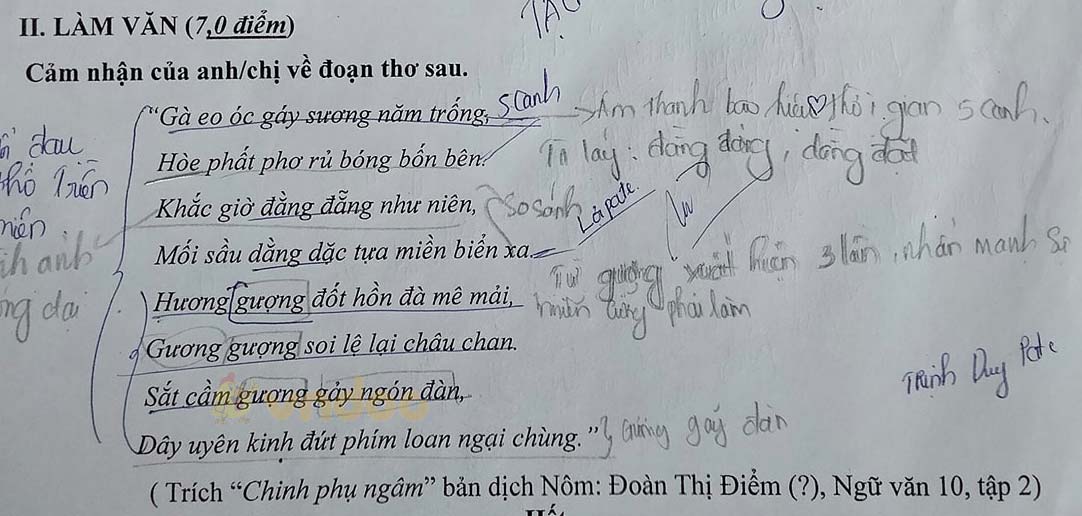 II. LÀM VĂN (7,0 điểm)
Cảm nhận của anh/chị về đoạn thơ sau.
"Gà eo óc gáy sương năm trống, scanh Âm thanh báo hiệu thời gian s canh.
Hòe phất phơ rủ bóng bốn bên. Từ láy: đằng đẵng, dằng dặc
Khắc giờ đằng đẵng như niên, so sánh
Mối sầu dằng dặc tựa miền biển xa. Lápate.
Từ gượng xuất hiện 3 lần, nhấn mạnh sự
Hương gượng đốt hồn đà mê mải, miễn cưỡng phải làm
Gương gượng soi lệ lại châu chan.
Trinh Duy Pate
Sắt cầm gượng gảy ngón đàn,
Dây uyên kinh đứt phím loan ngại chùng." gượng gảy đàn
( Trích "Chinh phụ ngâm" bản dịch Nôm: Đoàn Thị Điểm (?), Ngữ văn 10, tập 2)